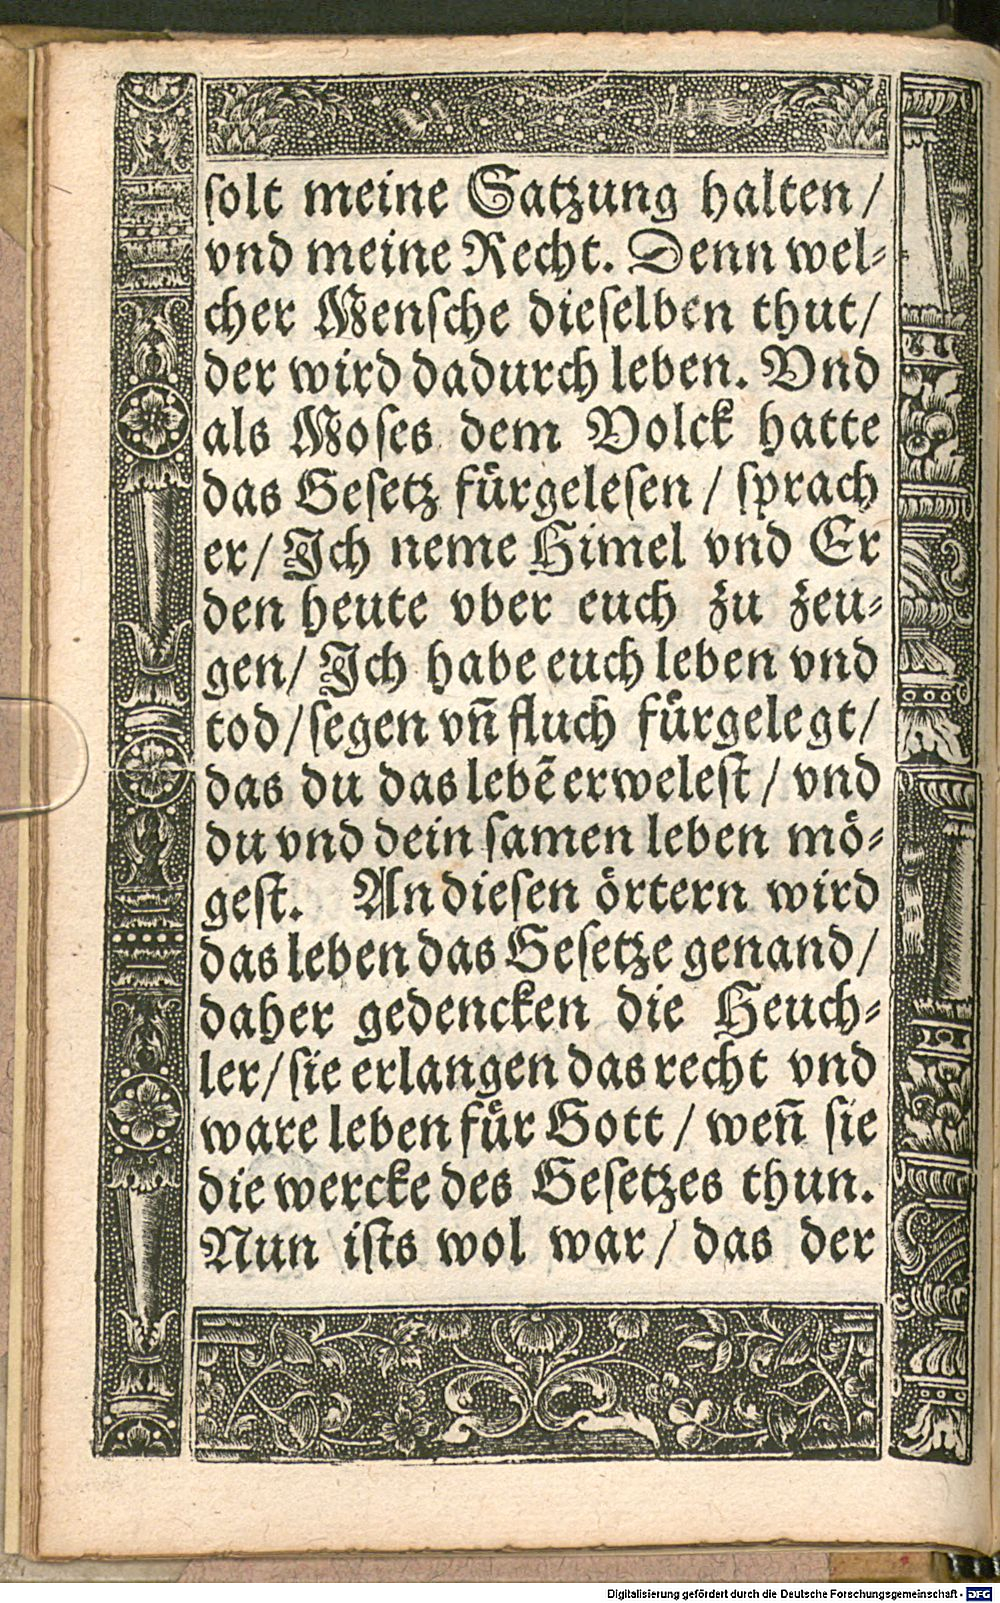 ſolt meine Satzung halten /
vnd meine Recht. Denn wel⸗
cher Menſche dieſelben thut /
der wird dadurch leben. Vnd
als Moſes dem Volck hatte
das Geſetz fuͤrgeleſen / ſprach
er / Jch neme Himel vnd Er
den heute vber euch zu zeu⸗
gen / Jch habe euch leben vnd
tod / ſegen vñ fluch fuͤrgelegt /
das du das lebẽ erweleſt / vnd
du vnd dein ſamen leben moͤ⸗
geſt. An dieſen oͤrtern wird
das leben das Geſetze genand /
daher gedencken die Heuch⸗
ler / ſie erlangen das recht vnd
ware leben fuͤr Gott / weñ ſie
die wercke des Geſetzes thun.
Nun iſts wol war / das der
Digitalisierung gefördert durch die Deutsche Forschungsgemeinschaft - DFG